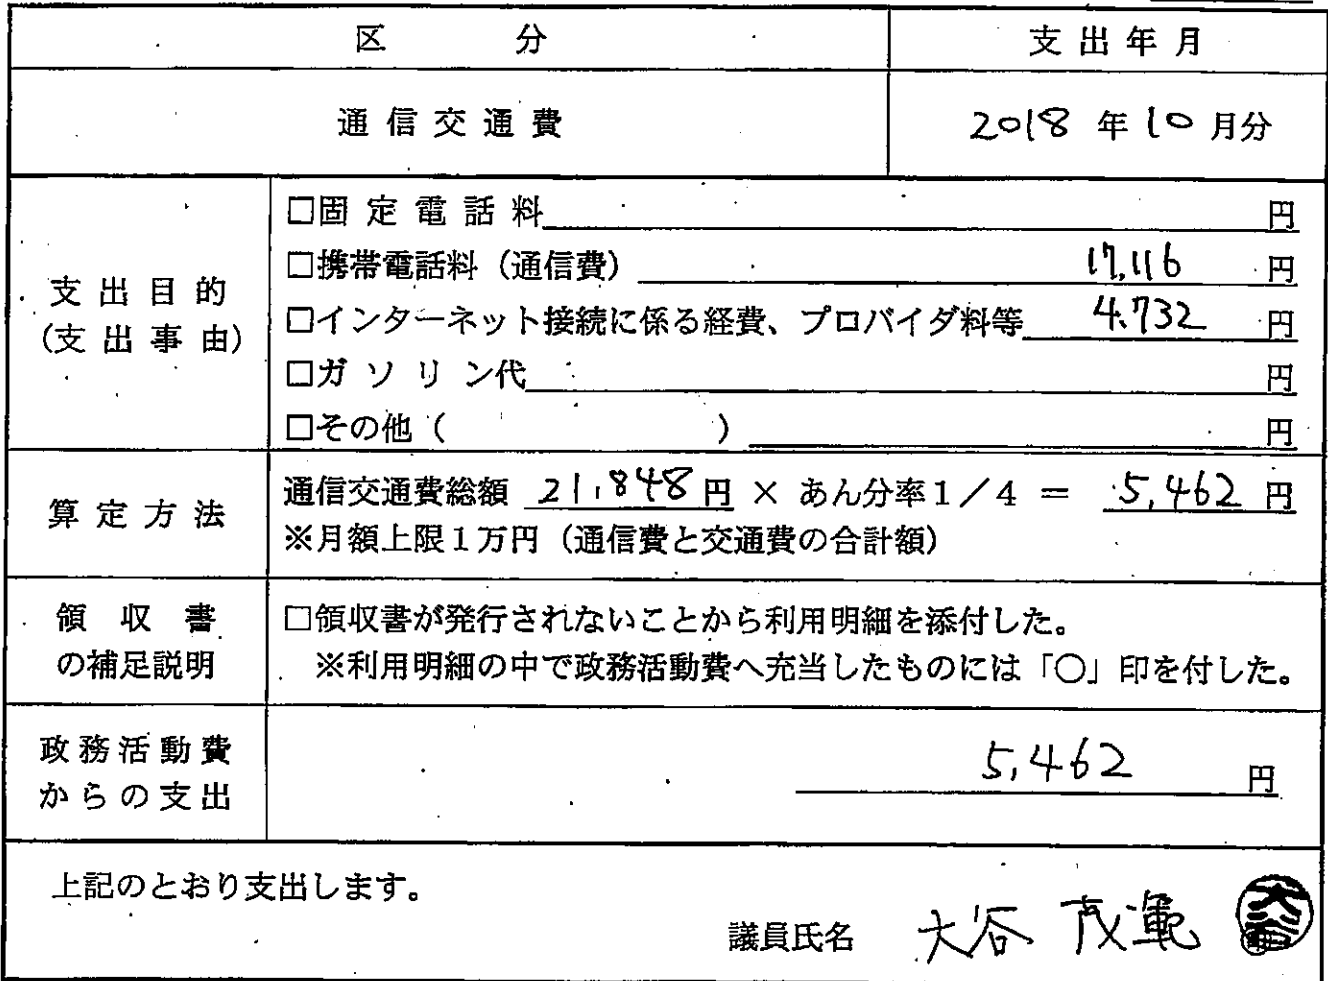 区 分 支出年月
通信交通費 2018年10月分
支出目的
(支出事由)
□固定電話料 円
□携帯電話料（通信費） 17,116 円
□インターネット接続に係る経費、プロバイダ料等 4,732 円
□ガソリン代 円
□その他（ ） 円
算定方法
通信交通費総額 21,848円 × あん分率1／4 ＝ 5,462円
※月額上限１万円（通信費と交通費の合計額）
領収書
の補足説明
□領収書が発行されないことから利用明細を添付した。
※利用明細の中で政務活動費へ充当したものには「○」印を付した。
政務活動費
からの支出
5,462 円
上記のとおり支出します。
議員氏名 大谷 茂範